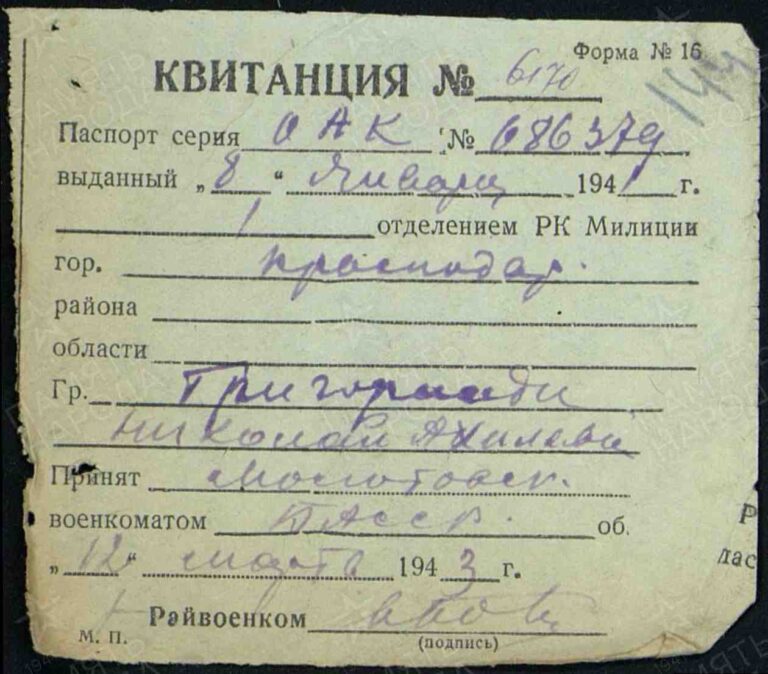 Форма № 16
144
КВИТАНЦИЯ № 6170
Паспорт серия ОАК № 686379
выданный „8“ Января 1941 г.
1 отделением РК Милиции
гор. Краснодар.
района
области
Гр. Григориади
Николай Ахилеви
Принят
военкоматом об.
„12“ марта 1943 г.
Райвоенком
М. П. (подпись)